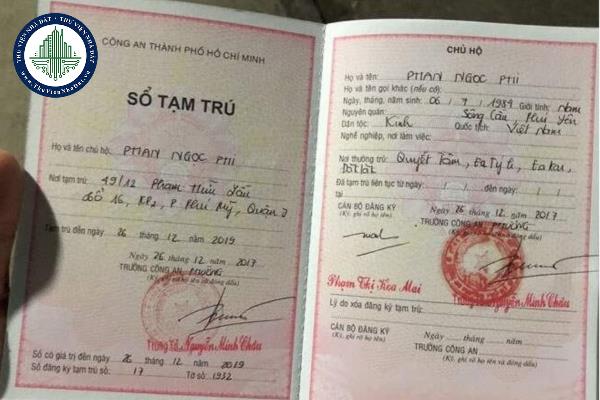 THƯ VIỆN NHÀ ĐẤT
www.ThuVienNhaDat.vn
CÔNG AN THÀNH PHỐ HỒ CHÍ MINH
SỔ TẠM TRÚ
Họ và tên chủ hộ: PHAN NGỌC PHI
Nơi tạm trú: 49/12 Phạm Hữu Lầu
tổ 16, KP2, P Phú Mỹ, Quận 7
Tạm trú đến ngày 26 tháng 12 năm 2019
Ngày 26 tháng 12 năm 2017
TRƯỞNG CÔNG AN PHƯỜNG
(Ký, ghi rõ họ tên và đóng dấu)
Trung Tá Nguyễn Minh Châu
Sổ có giá trị đến ngày 26 tháng 12 năm 2019
Số đăng ký tạm trú số: 17 Tờ số: 1932
CHỦ HỘ
Họ và tên: PHAN NGỌC PHI
Họ và tên gọi khác (nếu có):
Ngày, tháng, năm sinh: 06 / 9 / 1989 Giới tính: Nam
Nguyên quán: Sông Cầu, Phú Yên
Dân tộc: Kinh Quốc tịch: Việt Nam
Nghề nghiệp, nơi làm việc:
Nơi thường trú: Quyết Tâm, Ea Tý h, Ea Kar,
Đắk Lắk
Đã tạm trú liên tục từ ngày / / đến ngày / /
tại
Ngày 26 tháng 12 năm 2017
CÁN BỘ ĐĂNG KÝ TRƯỞNG CÔNG AN PHƯỜNG
(Ký, ghi rõ họ tên) (Ký, ghi rõ họ tên và đóng dấu)
Phạm Thị Hoa Mai
Trung Tá Nguyễn Minh Châu
Lý do xóa đăng ký tạm trú:
Ngày tháng năm
CÁN BỘ ĐĂNG KÝ TRƯỞNG CÔNG AN
(Ký, ghi rõ họ tên) (Ký, ghi rõ họ tên và đóng dấu)